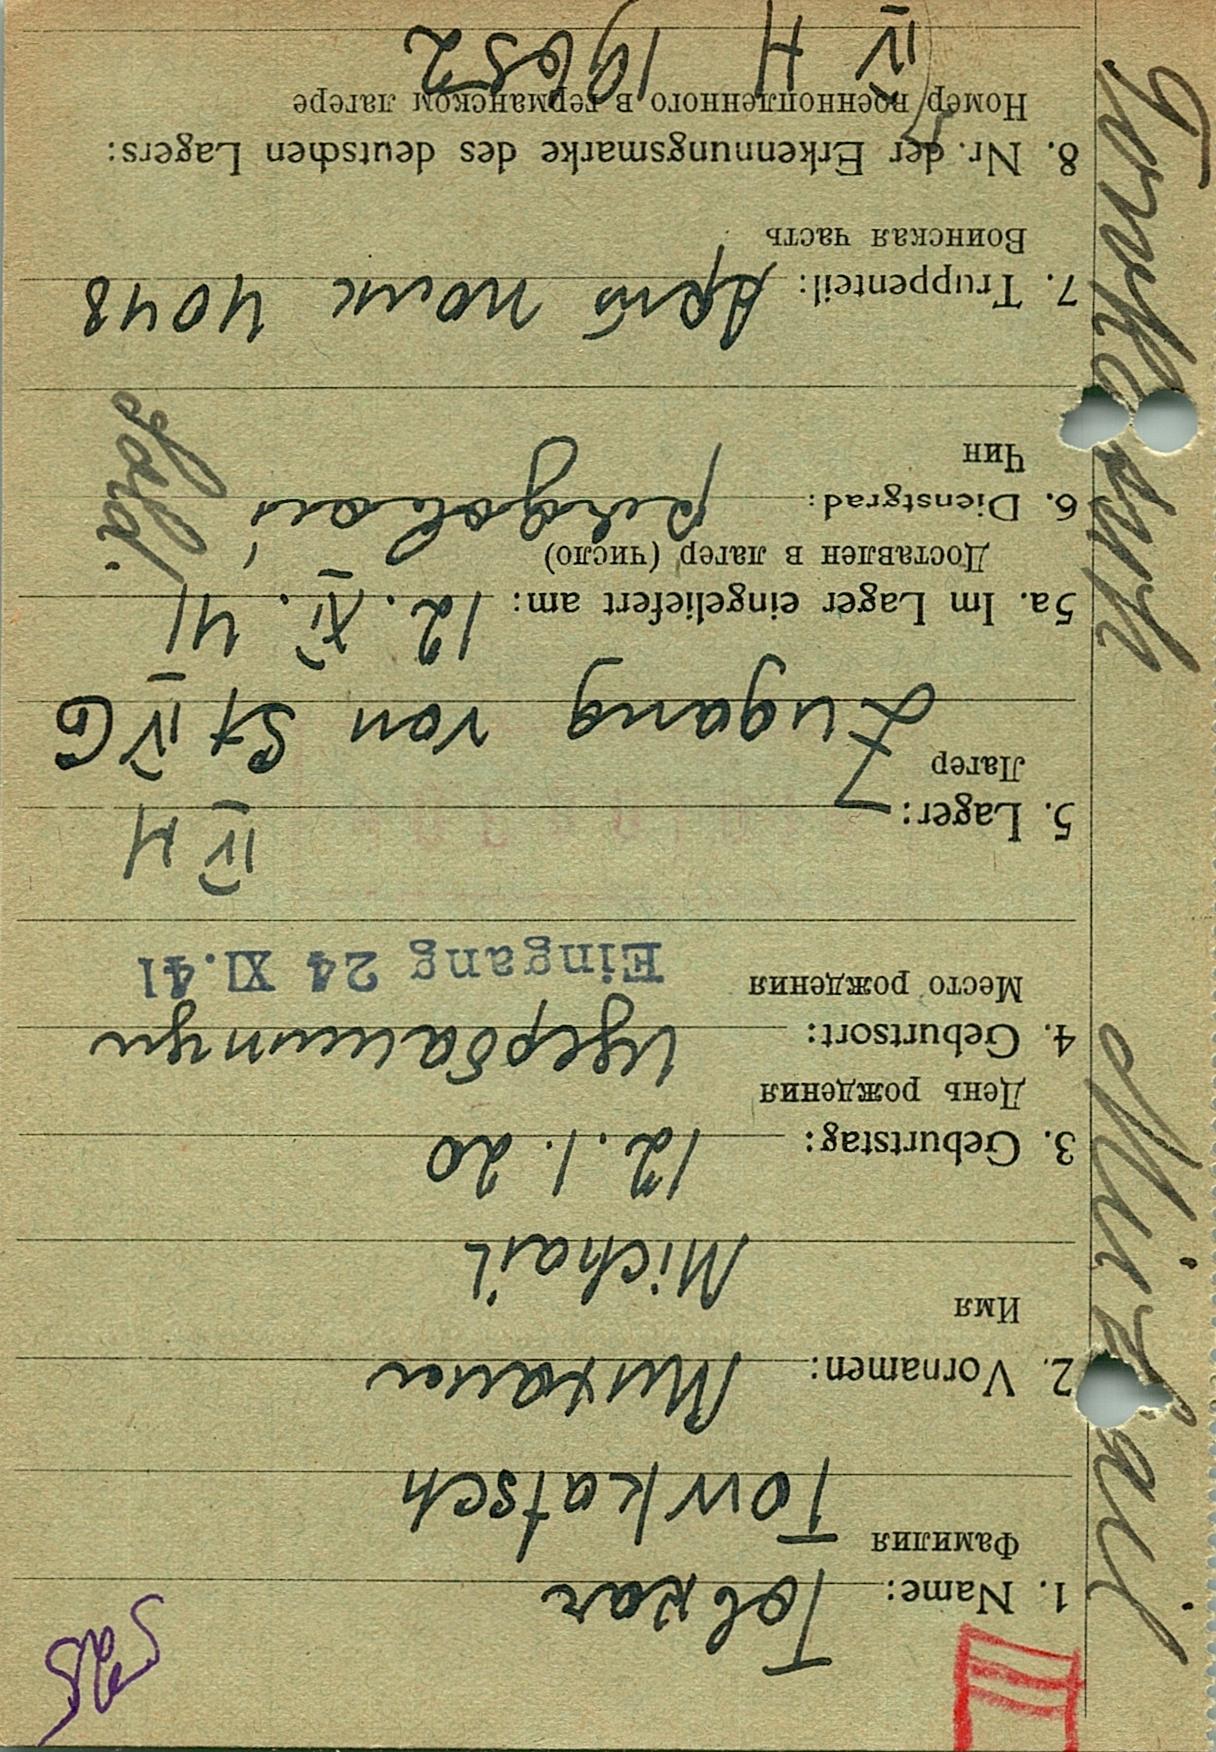 III
1. Name: Товкач
Фамилия Towkatsch
2. Vornamen: Михаил
Имя
Michail
3. Geburtstag: 12.1.20
День рождения
4. Geburtsort:
Место рождения
Eingang 24 XI.41
5. Lager: IV H
Лагер
Zugang von St IV G
5a. Im Lager eingeliefert am: 12. XI. 41
Доставлен в лагер (число)
6. Dienstgrad: рядовой Sold.
Чин
7. Truppenteil: Арт полк 4048
Воинская часть
8. Nr. der Erkennungsmarke des deutschen Lagers:
Номер военнопленного в германском лагере
IV H 19652